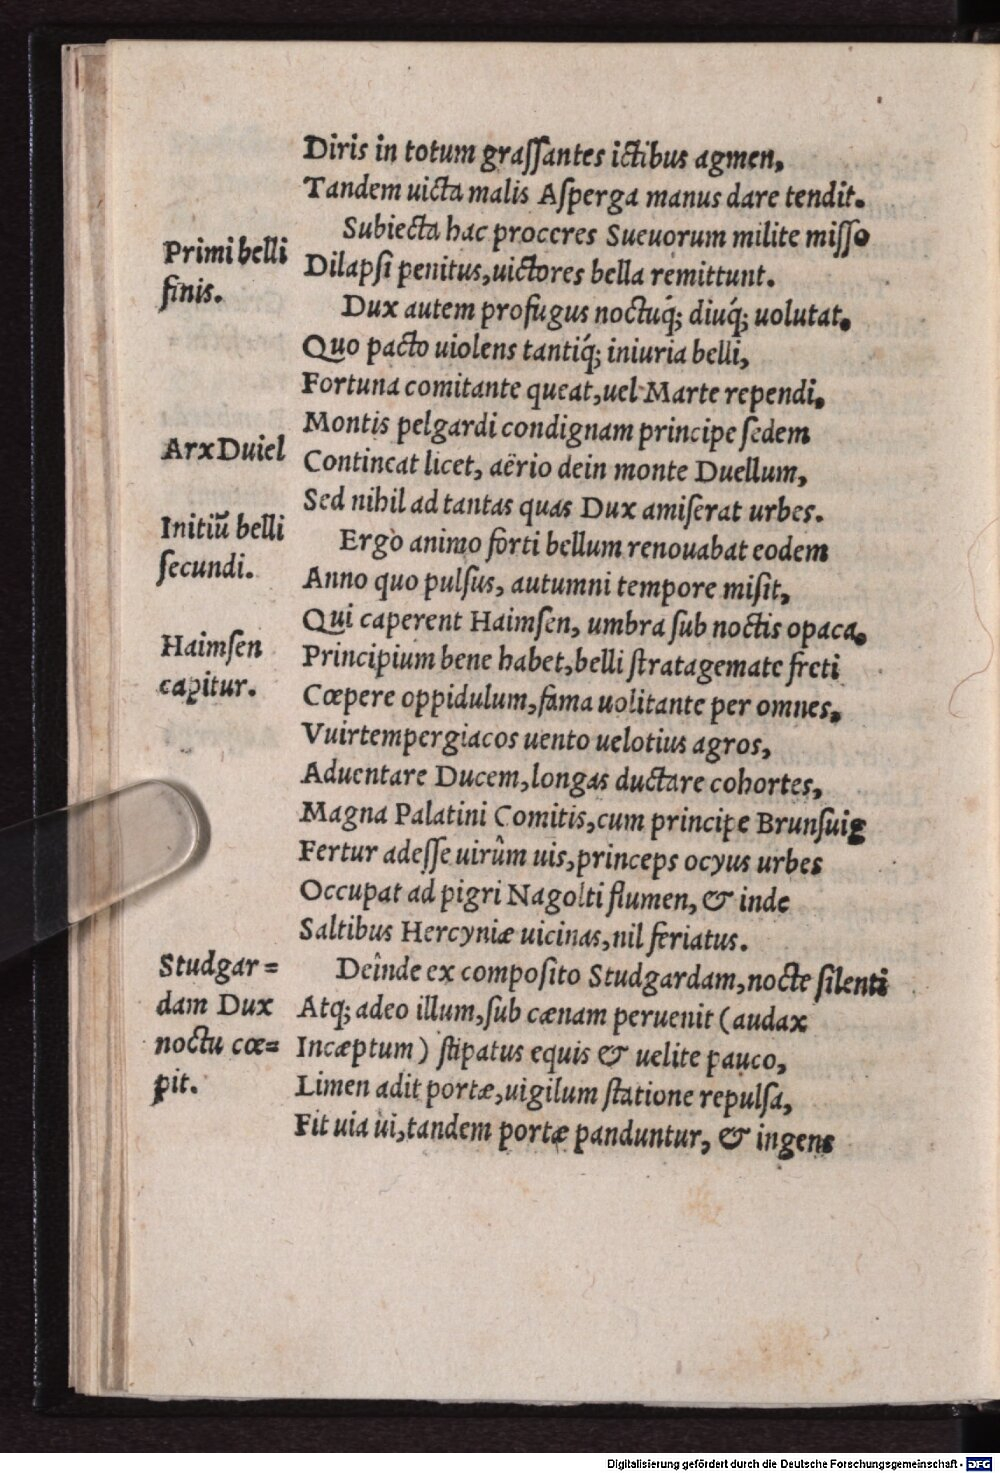 Diris in totum graſſantes ictibus agmen,
Tandem uicta malis Aſperga manus dare tendit.
Subiecta hac proceres Sueuorum milite miſſo
Primi belli
finis.
Dilapſi penitus, uictores bella remittunt.
Dux autem profugus noctuq́; diuq́; uolutat.
Quo pacto uiolens tantiq́; iniuria belli,
Fortuna comitante queat, uel Marte rependi.
Montis pelgardi condignam principe ſedem
Arx Duiel
Contineat licet, aërio dein monte Duellum,
Sed nihil ad tantas quas Dux amiſerat urbes.
Initiũ belli
ſecundi.
Ergo animo forti bellum renouabat eodem
Anno quo pulſus, autumni tempore miſit,
Qui caperent Haimſen, umbra ſub noctis opaca.
Haimſen
capitur.
Principium bene habet, belli ſtratagemate freti
Cœpere oppidulum, fama uolitante per omnes,
Vuirtempergiacos uento uelotius agros,
Aduentare Ducem, longas ductare cohortes,
Magna Palatini Comitis, cum principe Brunſuig
Fertur adeſſe uirûm uis, princeps ocyus urbes
Occupat ad pigri Nagolti flumen, & inde
Saltibus Hercyniæ uicinas, nil feriatus.
Studgar=
dam Dux
noctu cœ=
pit.
Deînde ex compoſito Studgardam, nocte ſilenti
Atq; adeo illum, ſub cænam peruenit (audax
Incæptum) ſtipatus equis & uelite pauco,
Limen adit portæ, uigilum ſtatione repulſa,
Fit uia ui, tandem portæ panduntur, & ingens
Digitalisierung gefördert durch die Deutsche Forschungsgemeinschaft - DFG